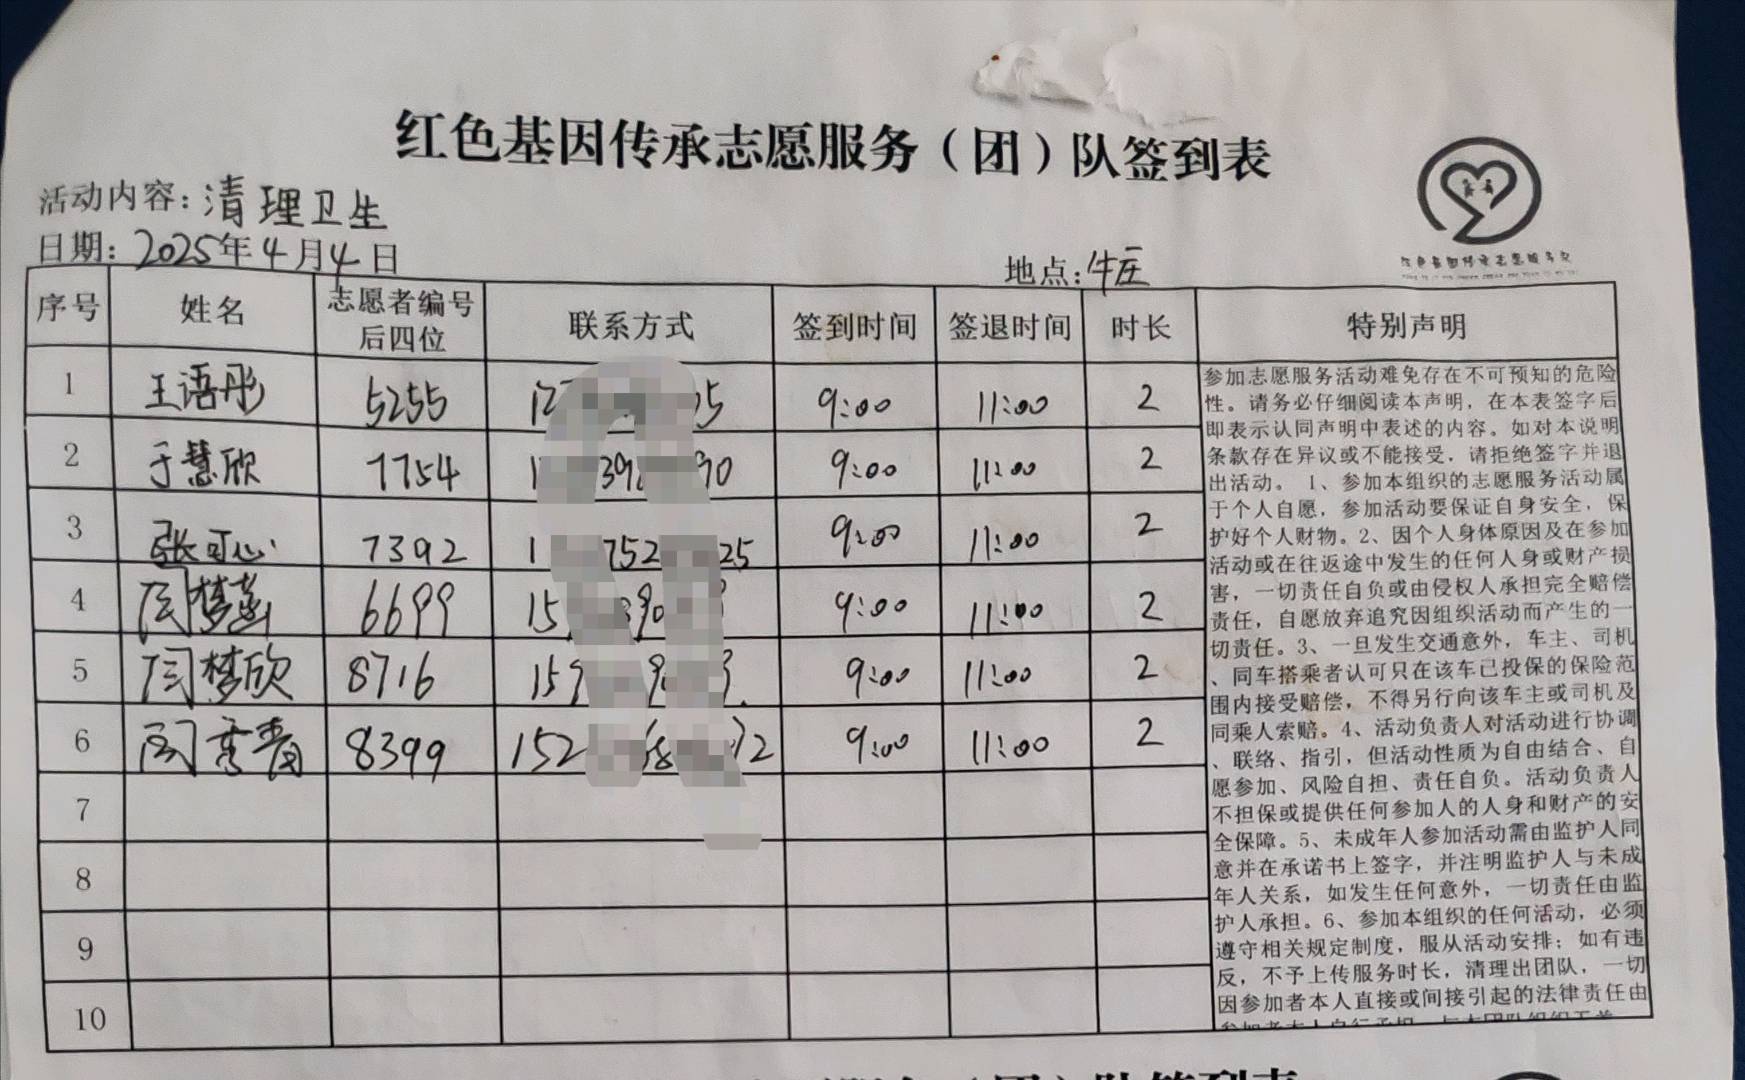 红色基因传承志愿服务（团）队签到表
活动内容：清理卫生
日期：2025年4月4日
地点：牛庄
序号 姓名 志愿者编号后四位 联系方式 签到时间 签退时间 时长 特别声明
1 王语彤 5255 9:00 11:00 2
2 于慧欣 7754 9:00 11:00 2
3 张可心 7392 9:00 11:00 2
4 闫梦 6699 9:00 11:00 2
5 闫梦欣 8716 9:00 11:00 2
6 闫秀青 8399 152 9:00 11:00 2
7
8
9
10
参加志愿服务活动难免存在不可预知的危险
性。请务必仔细阅读本声明，在本表签字后
即表示认同声明中表述的内容。如对本说明
条款存在异议或不能接受，请拒绝签字并退
出活动。 1、参加本组织的志愿服务活动属
于个人自愿，参加活动要保证自身安全，保
护好个人财物。2、因个人身体原因及在参加
活动或在往返途中发生的任何人身或财产损
害，一切责任自负或由侵权人承担完全赔偿
责任，自愿放弃追究因组织活动而产生的一
切责任。3、一旦发生交通意外，车主、司机
、同车搭乘者认可只在该车已投保的保险范
围内接受赔偿，不得另行向该车主或司机及
同乘人索赔。4、活动负责人对活动进行协调
、联络、指引，但活动性质为自由结合、自
愿参加、风险自担、责任自负。活动负责人
不担保或提供任何参加人的人身和财产的安
全保障。5、未成年人参加活动需由监护人同
意并在承诺书上签字，并注明监护人与未成
年人关系，如发生任何意外，一切责任由监
护人承担。6、参加本组织的任何活动，必须
遵守相关规定制度，服从活动安排；如有违
反，不予上传服务时长，清理出团队，一切
因参加者本人直接或间接引起的法律责任由